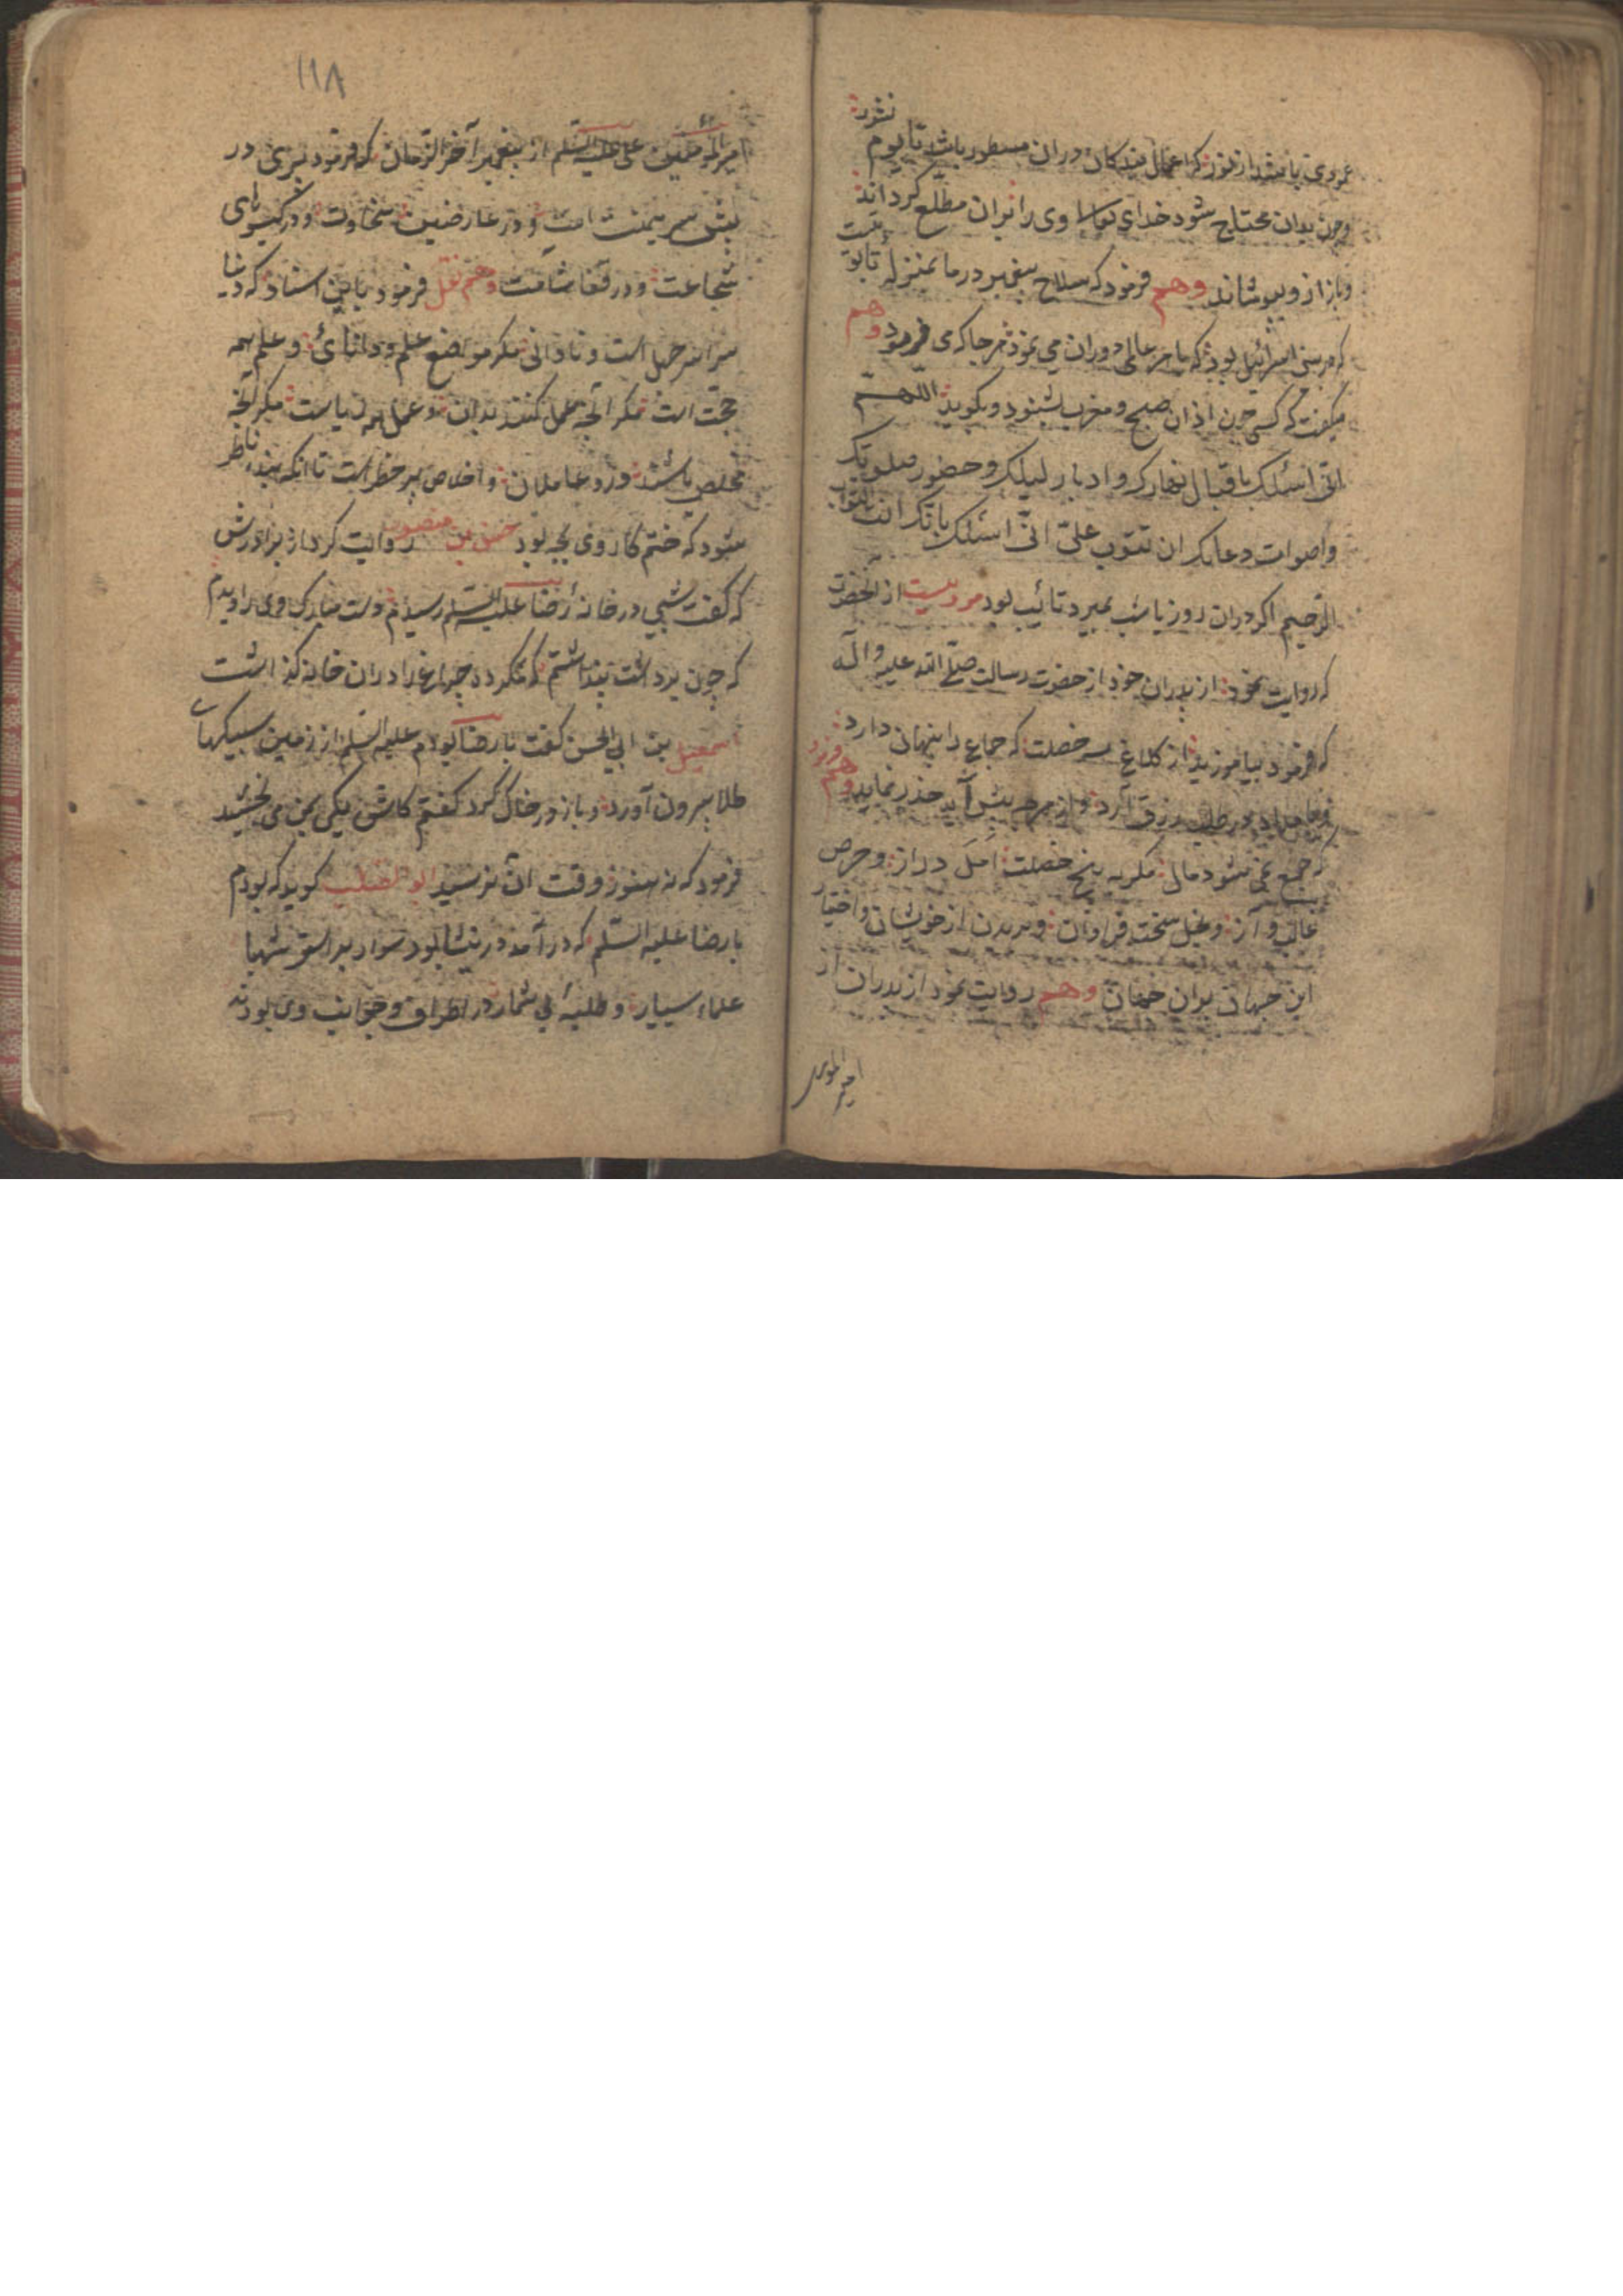 عمودی باشد از نور که اعمال بندکان دران مسطور باشد تا یوم نشور
و چون بدان محتاج شود خدای تعالی وی را بران مطلع کرداند
و باز از و بپوشاند وهم فرمود که سلاح پیغمبر در ما بمنزله تابوت
که در بنی اسرائیل بود که با هر عالمی دوران می نمود هر جا که می فرمود وهم
میکفت که کسی چون اذان صبح و مغرب بشنود و بکوید اللهم
انی اسئلک باقبال نهارک و ادبار لیلک و حضور صلوتک
و اصوات دعاتک ان تتوب علی انی اسئلک بانک انت التواب
الرحیم اکر دران روز یا شب بمیرد تائب بود مرویست از انحضرت
که روایت نمود از پدران خود از حضرت رسالت صلی الله علیه و اله
که فرمود بیاموزید از کلاغ سه خصلت که جماع را پنهان دارد
و بامداد در طلب رزق آرد و از هر چه پیش آید حذر نماید وهم فرمود
که جمع نمی شود مال مکر به پنج خصلت امل دراز و حرص
غالب و آز و بخل سخت فراوان و بریدن از خویشان و اختیار
این جهان بران جهان وهم روایت نمود از پدران از
امیر المومنین
۱۱۸
امیر المومنین علی علیه السلم از پیغمبر آخر الزمان که فرمود پیری در
پیش سر یمنست و در عارضین سخاوت و در کیسوهای
شجاعت و در قفا شامت وهم نقل فرمود باین اسناد که دنیا
سراسر جهل است و نادانی مکر مواضع علم و دانائی و علم همه
حجت است مکر آنچه عمل کنند بدان و عمل همه ریاست مکر آنچه
مخلص باشند و اخلاص بر خطر است تا انکه بنده ناظر
شود که ختم کار وی بچه بود حسن بن منصور روایت کرد از برادرش
که کفت شبی در خانه رضا علیه السلم رسیدم دست مبارک وی را دیدم
که چون برداشت پنداشتم که ده چراغ را دران خانه کذاشت
اسمعیل بن ابی الحسن کفت با رضا بودم علیه السلم از زمین سبیکهای
طلا بیرون آورد و باز در خاک کرد کفتم کاش یکی بمن می بخشید
فرمود که نه هنوز وقت ان نرسید ابو الصلت کوید که بودم
با رضا علیه السلم که در آمد در نیشابور سوار بر استر شهبا
علماء بسیار و طلبه بی شمار در اطراف و جوانب وی بودند